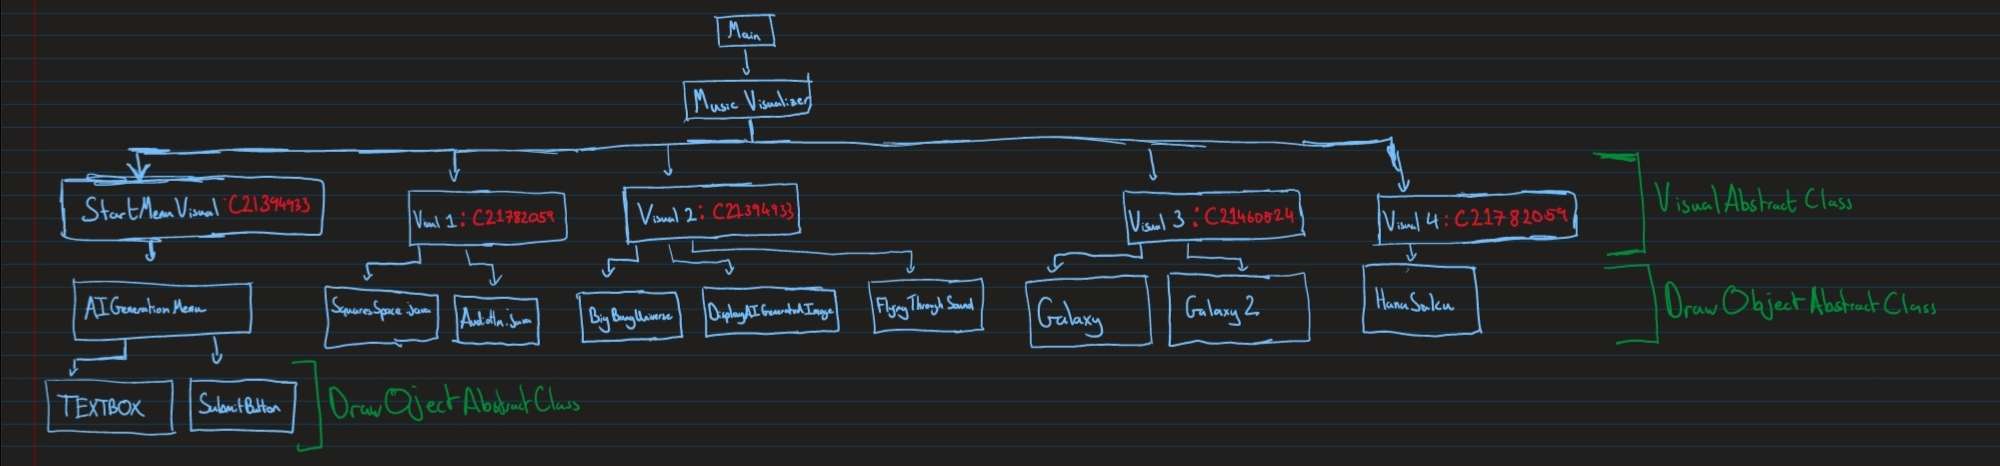 Main
Music Visualizer
StartMenuVisual C21394933
Visual 1: C21782059
Visual 2: C21394933
Visual 3: C21460524
Visual 4: C21782059
VisualAbstractClass
AIGenerationMenu
SquaresSpace.java
BigBangUniverse
DisplayAIGeneratedImage
FlyingThroughSound
Galaxy
Galaxy 2
HanaSaku
DrawObjectAbstractClass
TEXTBOX
SubmitButton
DrawOjectAbstractClass